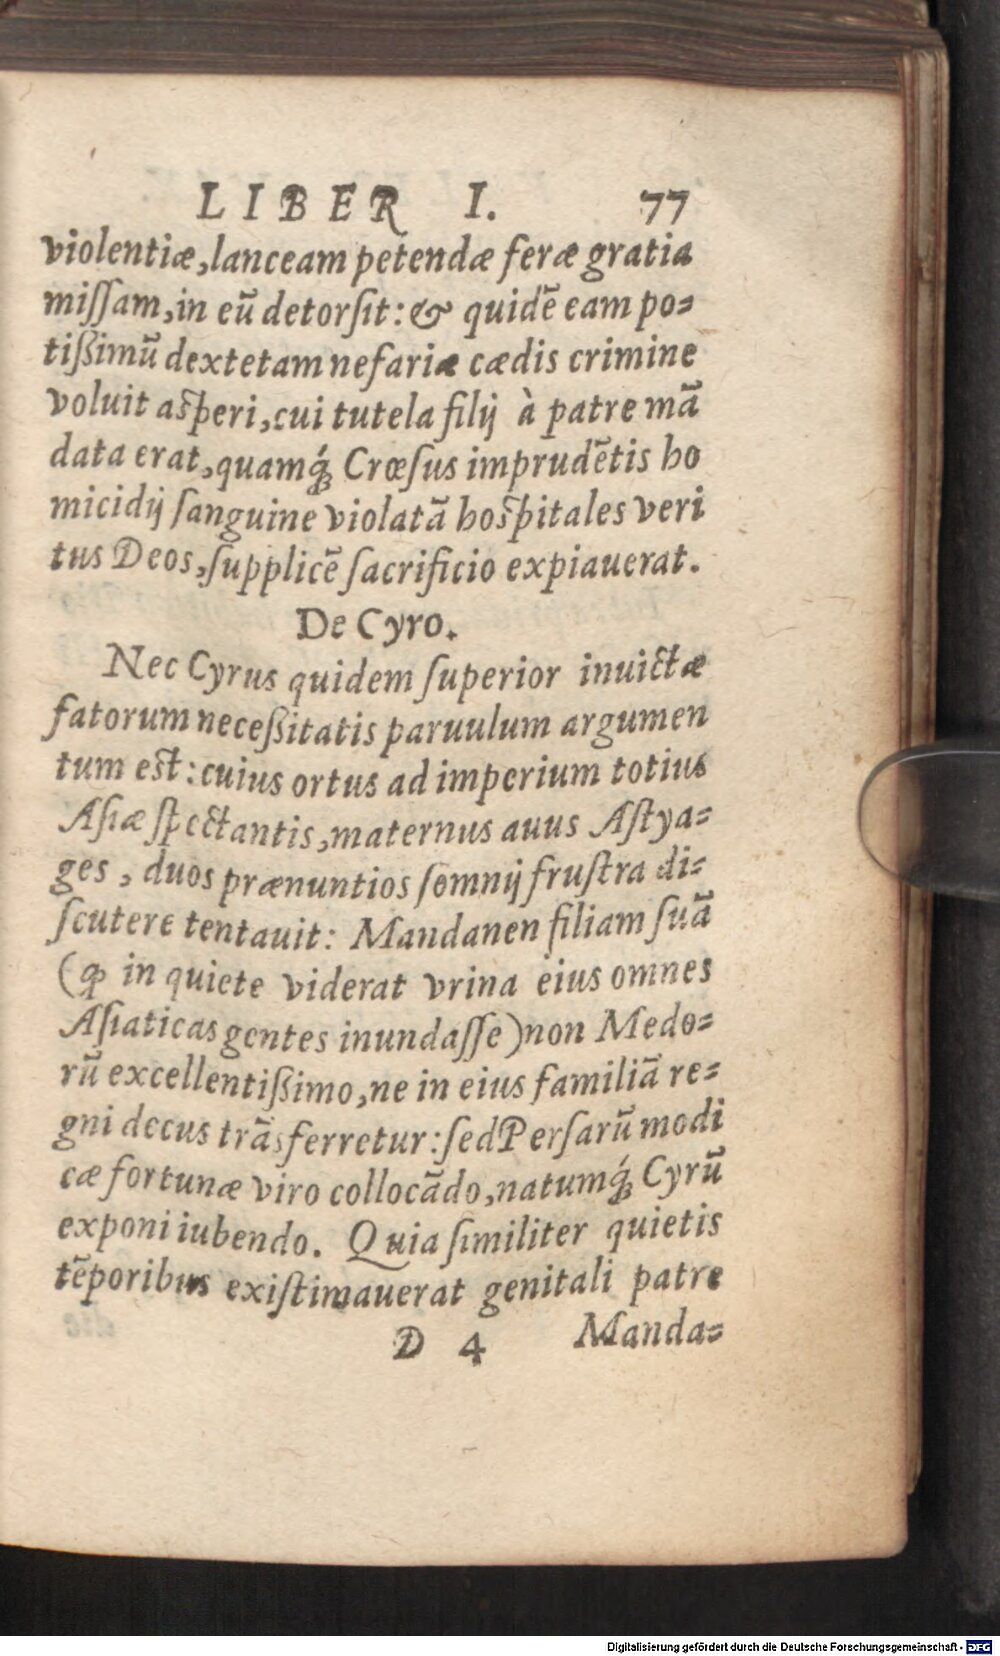 LIBER I. 77
violentiæ, lanceam petendæ feræ gratia
miſſam, in eũ detorſit: & quidẽ eam po=
tißimũ dextetam nefariæ cædis crimine
voluit aſperi, cui tutela filij à patre mã
data erat, quamq́; Crœſus imprudẽtis ho
micidij ſanguine violatã hoſpitales veri
tus Deos, ſupplicẽ ſacrificio expiauerat.
De Cyro.
Nec Cyrus quidem ſuperior inuictæ
fatorum neceßitatis paruulum argumen
tum eſt: cuius ortus ad imperium totius
Aſiæ ſpectantis, maternus auus Aſtya=
ges, duos prænuntios ſomnij fruſtra di=
ſcutere tentauit: Mandanen filiam ſuã
(ꝙ in quiete viderat vrina eius omnes
Aſiaticas gentes inundaſſe) non Medo=
rũ excellentißimo, ne in eius familiã re=
gni decus trãsferretur: ſed Perſarũ modi
cæ fortunæ viro collocãdo, natumq́; Cyrũ
exponi iubendo. Quia ſimiliter quietis
tẽporibus exiſtimauerat genitali patre
D 4 Manda=
Digitalisierung gefördert durch die Deutsche Forschungsgemeinschaft - DFG